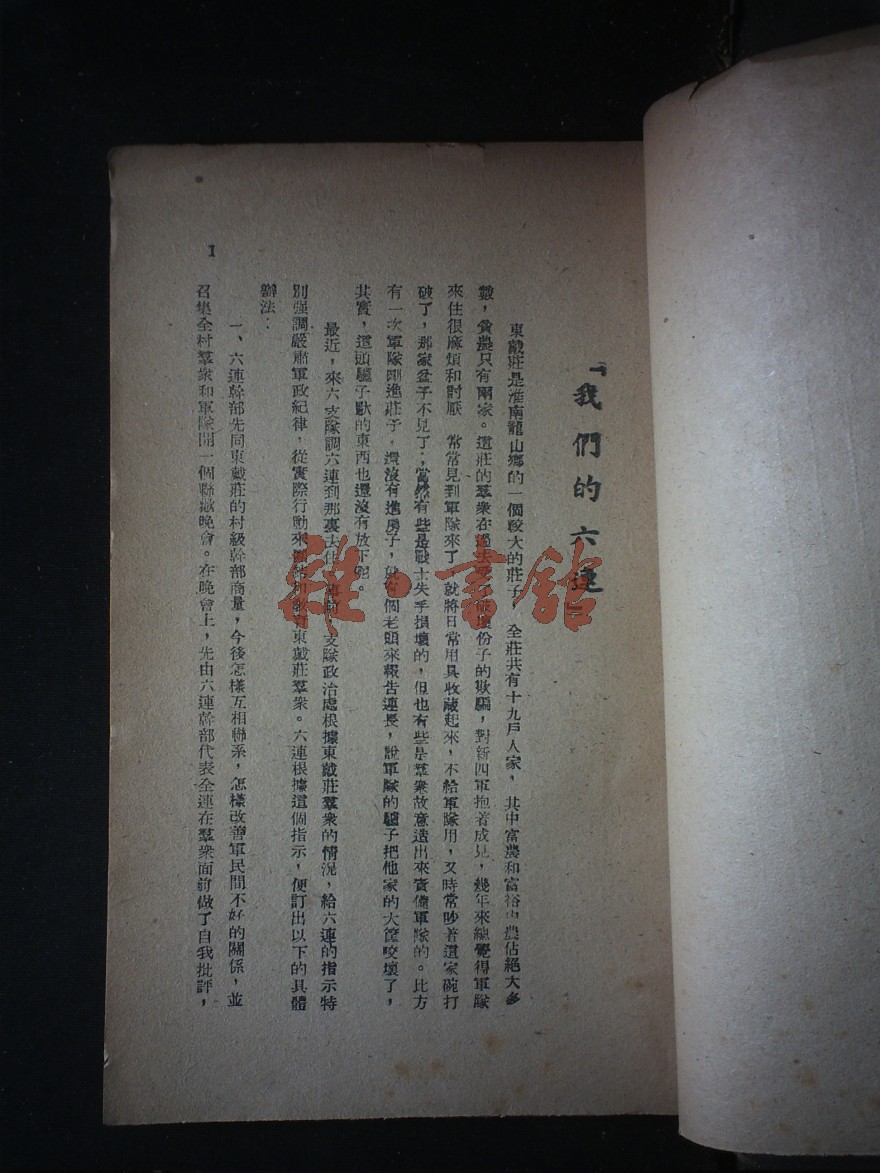 「我們的六連」
東戴莊是淮南龍山鄉的一個較大的莊子，全莊共有十九戶人家，其中富農和富裕中農佔絕大多
數，貧農只有兩家。這莊的羣衆在過去受了些壞份子的欺騙，對新四軍抱着成見，幾年來總覺得軍隊
來住很麻煩和討厭　常常見到軍隊來了，就將日常用具收藏起來，不給軍隊用，又時常吵著這家碗打
破了，那家盆子不見了；當然有些是戰士失手損壞的，但也有些是羣衆故意造出來責備軍隊的。比方
有一次軍隊剛進莊子，還沒有進房子，就有個老頭來報告連長，說軍隊的驢子把他家的大筐咬壞了，
其實，這頭驢子馱的東西也還沒有放下呢。
最近，來六支隊調六連到那裏去住，事前，支隊政治處根據東戴莊羣衆的情況，給六連的指示特
別强調嚴肅軍政紀律，從實際行動來團結和教育東戴莊羣衆。六連根據這個指示，便訂出以下的具體
辦法：
一、六連幹部先同東戴莊的村級幹部商量，今後怎樣互相聯系，怎樣改善軍民間不好的關係，並
召集全村羣衆和軍隊開一個聯歡晚會。在晚會上，先由六連幹部代表全連在羣衆面前做了自我批評，
1
雜·書館